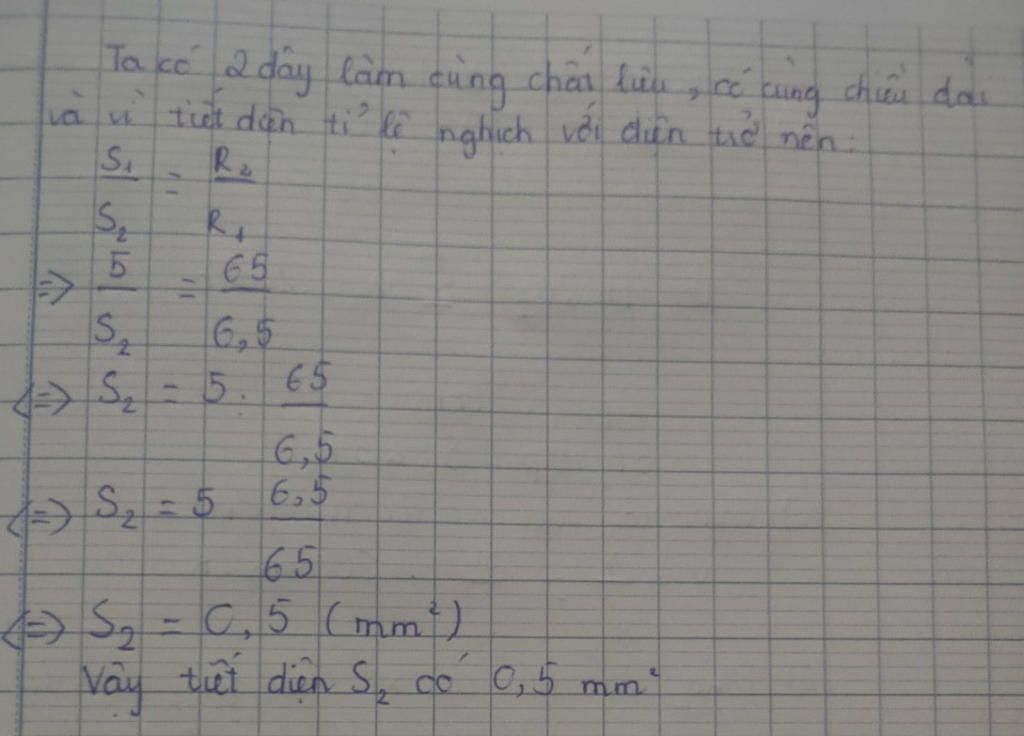 Ta có 2 dây làm cùng chất liệu, có cùng chiều dài
và vì tiết diện tỉ lệ nghịch với điện trở nên:
S₁/S₂ = R₂/R₁
=> 5/S₂ = 65/6,5
<=> S₂ = 5. 65/6,5
<=> S₂ = 5 6,5/65
<=> S₂ = 0,5 (mm²)
Vậy tiết diện S₂ có 0,5 mm²